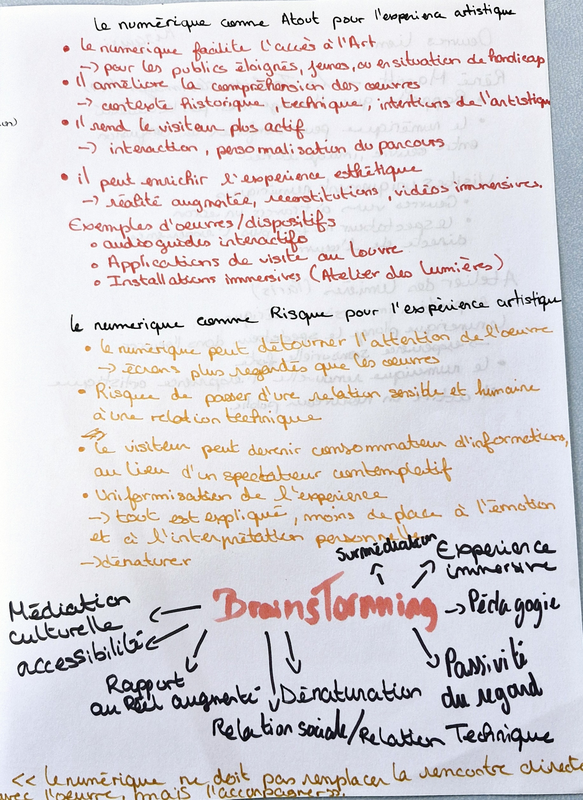 Le numérique comme Atout pour l'expérience artistique
• le numérique facilite l'accès à l'Art
-> pour les publics éloignés, jeunes, ou en situation de handicap
• Il améliore la compréhension des œuvres
-> contexte historique, technique, intentions de l'artistique
• Il rend le visiteur plus actif
-> interaction, personnalisation du parcours
• il peut enrichir l'expérience esthétique
-> réalité augmentée, reconstitutions, vidéos immersives.
Exemples d'œuvres/dispositifs
• audioguides interactifs
• Applications de visite au Louvre
• Installations immersives (Atelier des Lumières)
le numérique comme Risque pour l'expérience artistique
• le numérique peut détourner l'attention de l'œuvre
-> écrans plus regardés que les œuvres
• Risque de passer d'une relation sensible et humaine
à une relation technique
• le visiteur peut devenir consommateur d'informations,
au lieu d'un spectateur contemplatif
• Uniformisation de l'expérience
-> tout est expliqué, moins de place à l'émotion
et à l'interprétation personnelle
-> dénaturer
Surmédiation
Expérience
immersive
Brainstormning
-> Pédagogie
Médiation
culturelle
accessibilité
Passivité
du regard
Rapport
au Réel augmenté
Dénaturation
Relation sociale/Relation Technique
<< le numérique ne doit pas remplacer la rencontre directe
avec l'oeuvre, mais l'accompagner>>.